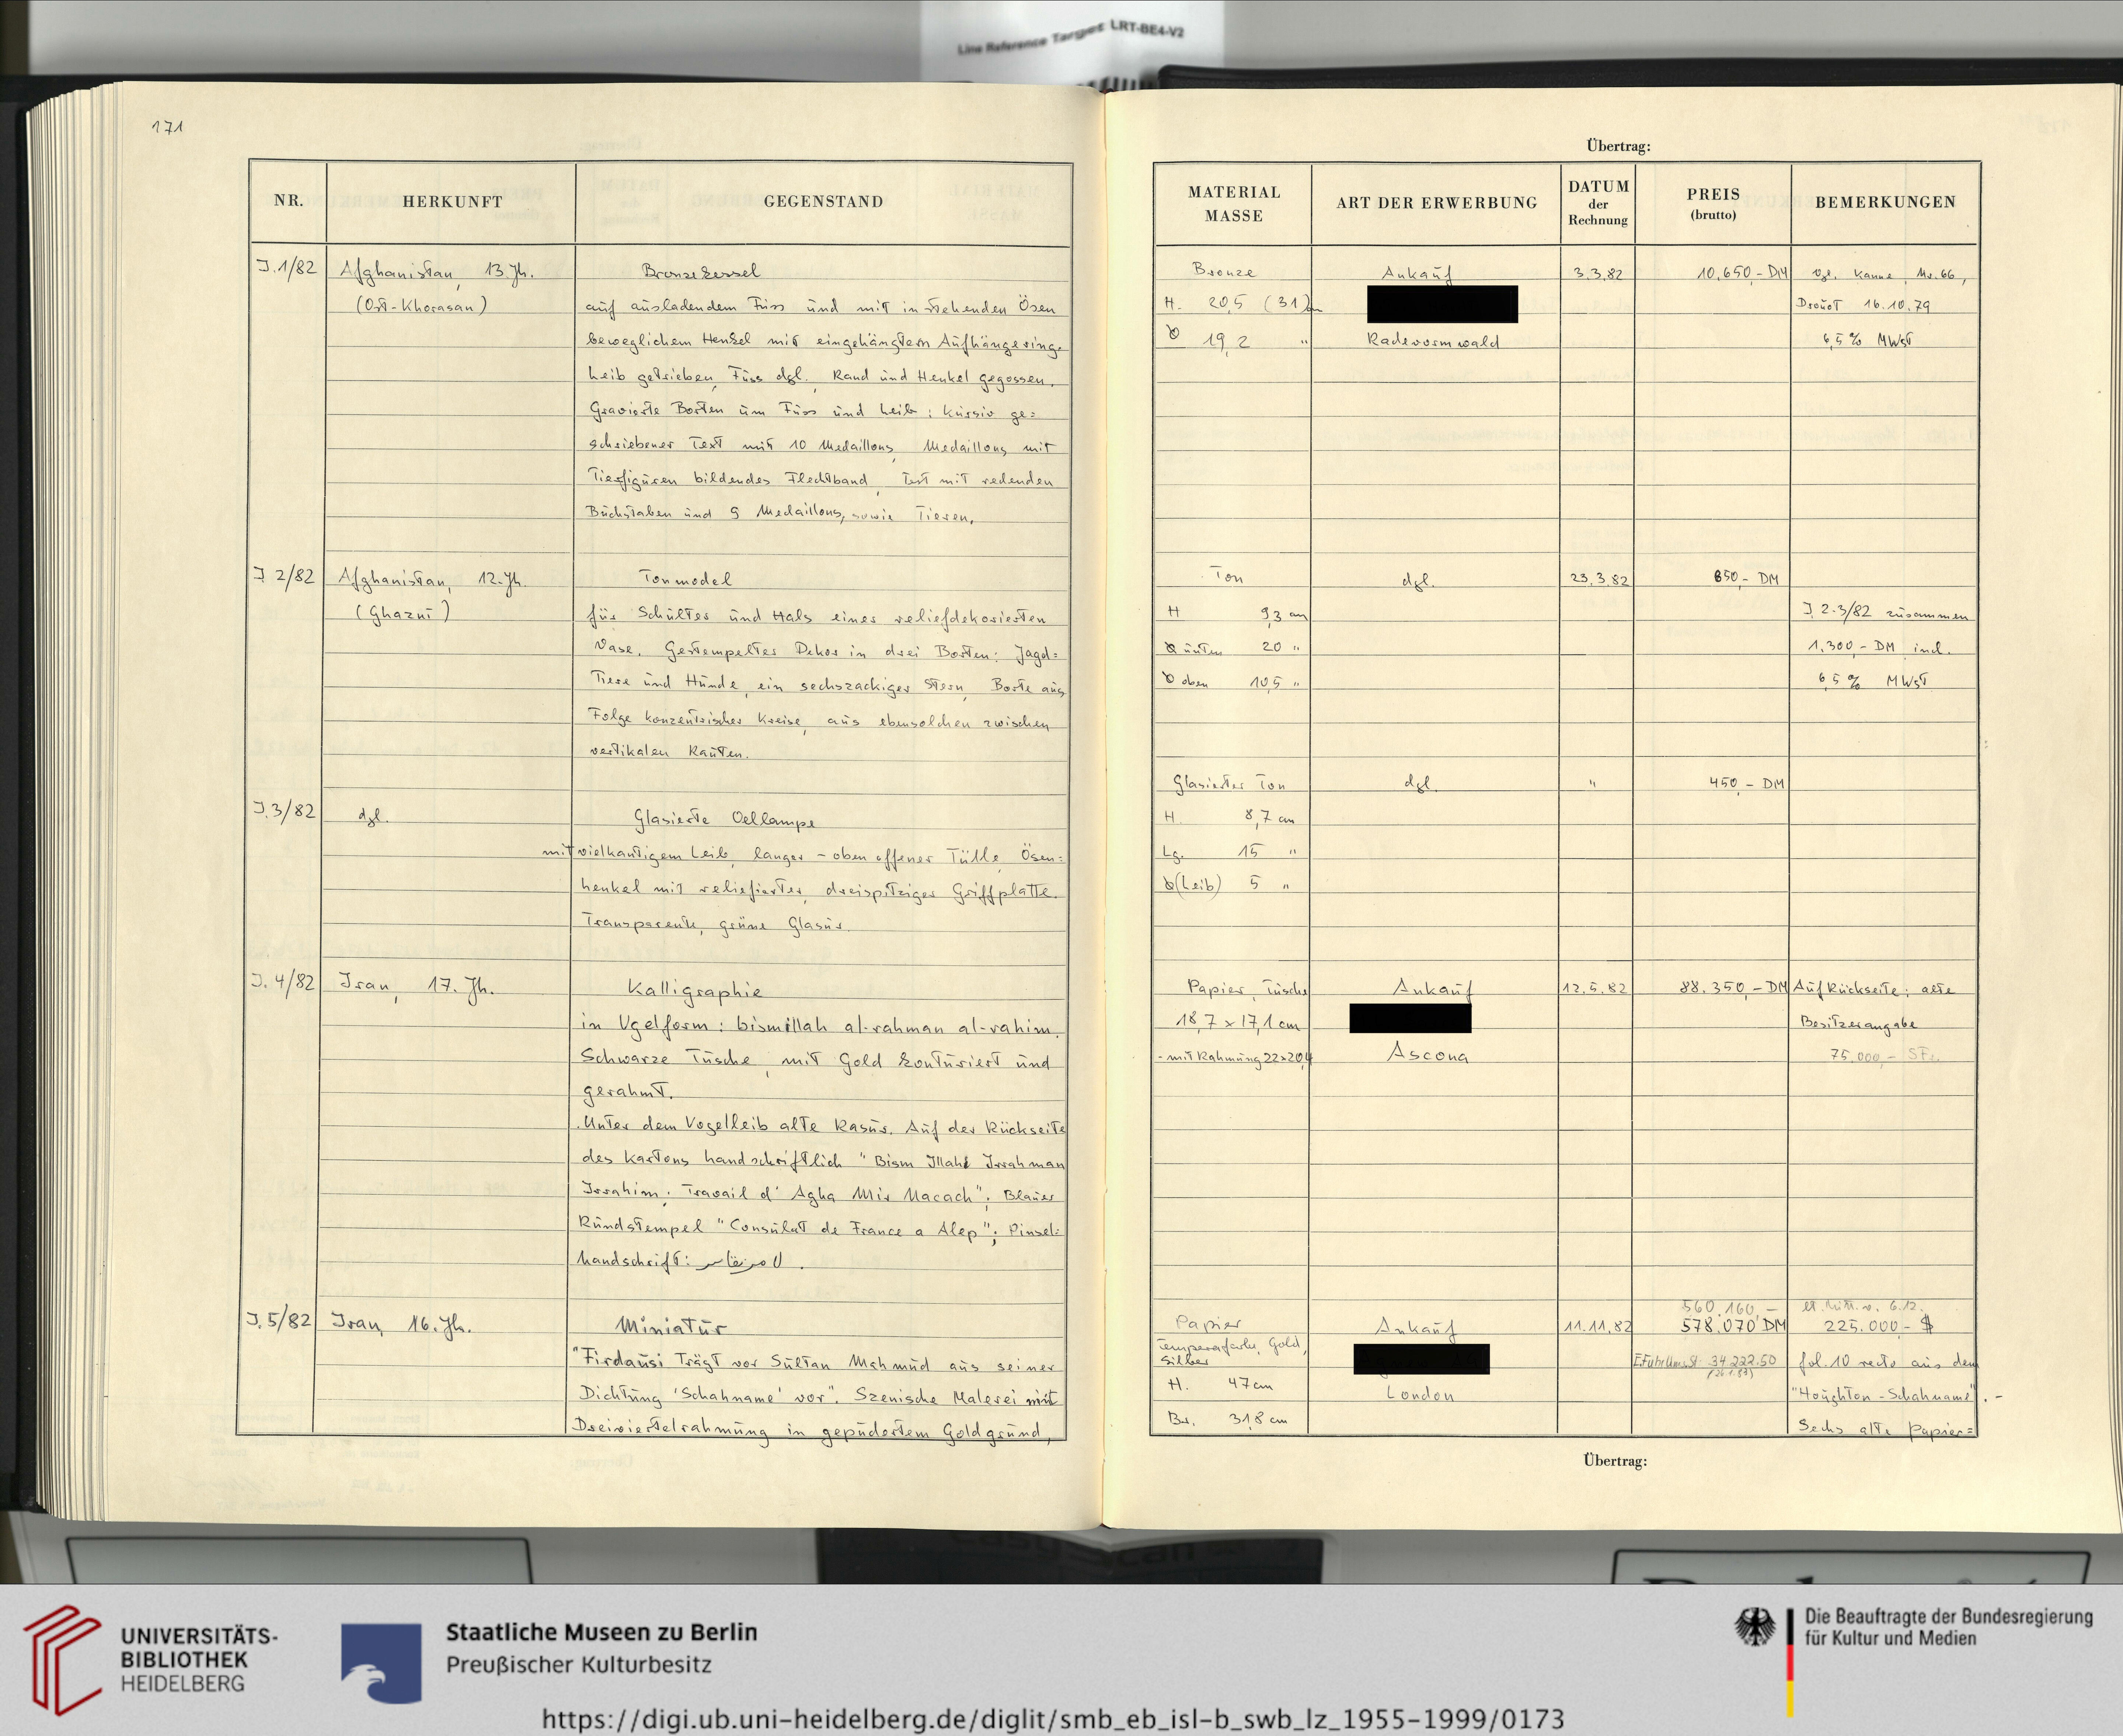 Line Reference Target LRT-BE4-V2
171
NR.
HERKUNFT
GEGENSTAND
J.1/82
Afghanistan, 13. Jh.
(Ost-Khorasan)
Bronzekessel
auf ausladendem Fuss und mit in stehenden Ösen
beweglichem Henkel mit eingehängtem Aufhängering.
Leib getrieben, Fuss dgl., Rand und Henkel gegossen.
Gravierte Borten um Fuss und Leib: kursiv ge=
schriebener Text mit 10 Medaillons, Medaillons mit
Tierfiguren bildendes Flechtband, Text mit redenden
Buchstaben und 9 Medaillons, sowie Tieren.
J 2/82
Afghanistan, 12. Jh.
(Ghazni)
Tonmodel
für Schulter und Hals eines reliefdekorierten
Vase. Gestempelter Dekor in drei Borten: Jagd=
Tiere und Hunde, ein sechszackiger Stern, Borte aus
Folge konzentrischer Kreise, aus ebensolchen zwischen
vertikalen Rauten.
J.3/82
dgl.
Glasierte Oellampe
mit vielkantigem Leib, langer - oben offener Tülle, Ösen=
henkel mit reliefierter, dreispitziger Griffplatte.
Transparente, grüne Glasur.
J. 4/82
Iran, 17. Jh.
Kalligraphie
in Vgelform: bismillah al-rahman al-rahim.
Schwarze Tusche, mit Gold konturiert und
gerahmt.
Unter dem Vogelleib alte Rasur. Auf der Rückseite
des Kartons handschriftlich "Bism Illahi Irrahman
Irrahim. Travail d' Agha Mir Macach"; Blauer
Rundstempel "Consulat de France a Alep"; Pinsel=
handschrift:
J.5/82
Iran, 16. Jh.
Miniatur
"Firdausi trägt vor Sultan Mahmud aus seiner
Dichtung 'Schahname' vor". Szenische Malerei mit
Dreiviertelrahmung in gepudertem Goldgrund,
Übertrag:
MATERIAL
MASSE
ART DER ERWERBUNG
DATUM
der
Rechnung
PREIS
(brutto)
BEMERKUNGEN
Bronze
H. 20,5 (31) cm
Ø 19,2 "
Ankauf
Radevormwald
3.3.82
10.650,- DM
Vgl. Kanne, Nr. 66,
Drouot 16.10.79
6,5% MWSt
Ton
H 9,3 cm
Ø unten 20 "
Ø oben 10,5 "
dgl.
23.3.82
850,- DM
J. 2-3/82 zusammen
1.300,- DM incl.
6,5% MWSt
Glasierter Ton
H. 8,7 cm
Lg. 15 "
Ø (Leib) 5 "
dgl.
"
450,- DM
Papier, Tusche
18,7 x 17,1 cm
- mit Rahmung 22 x 20,4
Ankauf
Ascona
12.5.82
88.350,- DM
Auf Rückseite: alte
Besitzerangabe
75.000,- SFr.
Papier
Temperafarbe, Gold,
Silber
H. 47 cm
Br. 31,8 cm
Ankauf
London
11.11.82
560.160,-
578.070 DM
EFuhrUmsSt. 34.222.50
(26.1.83)
lt. Mitt. v. 6.12.
225.000,- $
fol. 10 recto aus dem
"Houghton-Schahname". -
Sechs alte Papier=
Übertrag:
UNIVERSITÄTS-
BIBLIOTHEK
HEIDELBERG
Staatliche Museen zu Berlin
Preußischer Kulturbesitz
Die Beauftragte der Bundesregierung
für Kultur und Medien
https://digi.ub.uni-heidelberg.de/diglit/smb_eb_isl-b_swb_lz_1955-1999/0173